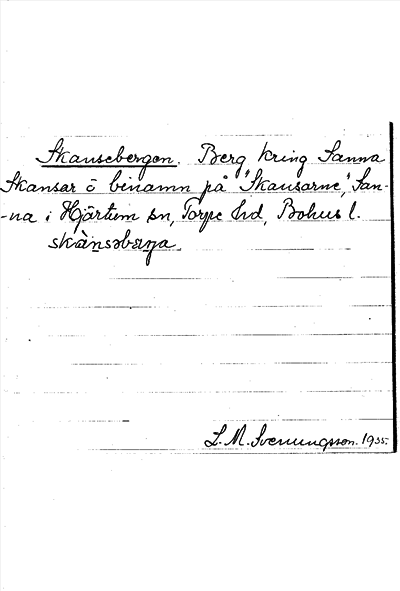 Skansebergen. Berg kring Sanna
Skansar ö benamn på "Skansarne", San-
-na i Hjärtum sn, Torpe hd, Bohus l.
skànsəbærja.
L. M. Svenungsson. 1935.